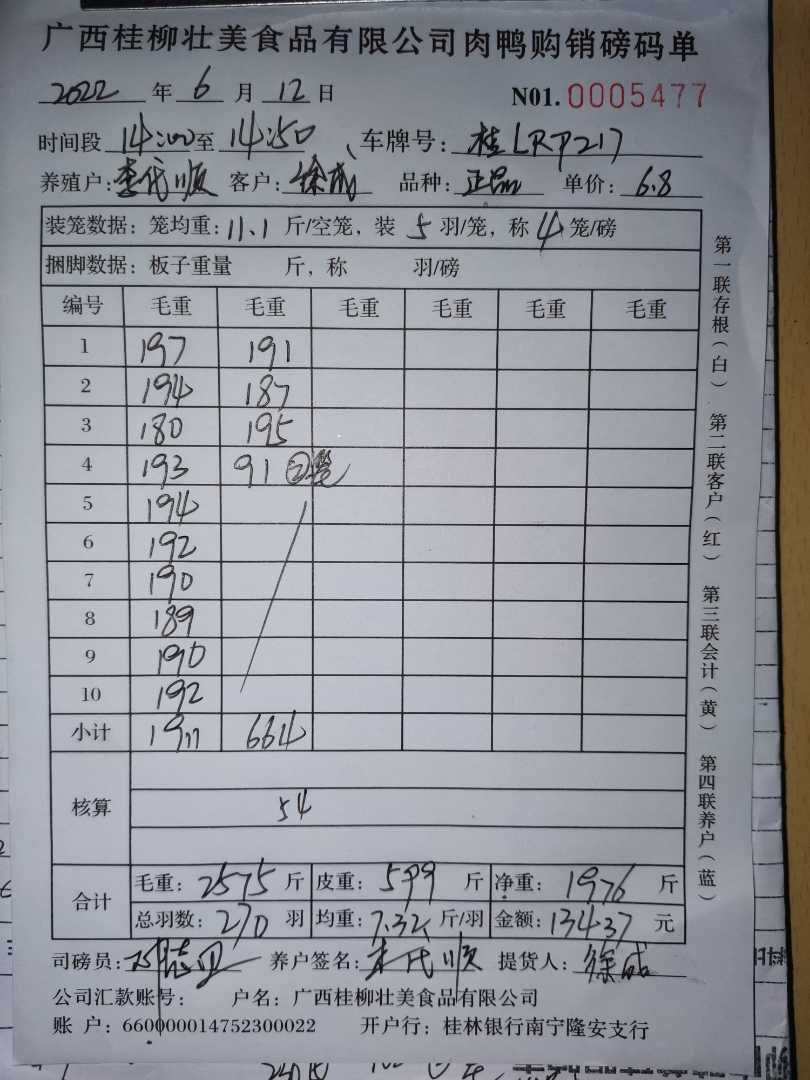 广西桂柳壮美食品有限公司肉鸭购销磅码单
2022 年 6 月 12 日 N01. 0005477
时间段 14:00 至 14:50 、车牌号: 桂LRP217
养殖户: 李代顺 客户: 徐成 品种: 正品 单价: 6.8
装笼数据: 笼均重: 11.1 斤/空笼, 装 5 羽/笼, 称 4 笼/磅
捆脚数据: 板子重量 斤, 称 羽/磅
编号 毛重 毛重 毛重 毛重 毛重 毛重
1 197 191
2 194 187
3 180 195
4 193 91 ②笼
5 194
6 192
7 190
8 189
9 190
10 192
小计 1911 664
核算 54
合计 毛重: 2575 斤 皮重: 599 斤 净重: 1976 斤
总羽数: 270 羽 均重: 7.32 斤/羽 金额: 13437 元
司磅员: 养户签名: 李代顺 提货人: 徐成
公司汇款账号: 户名: 广西桂柳壮美食品有限公司
账 户: 660000014752300022 开户行: 桂林银行南宁隆安支行
第一联存根(白) 第二联客户(红) 第三联会计(黄) 第四联养户(蓝)